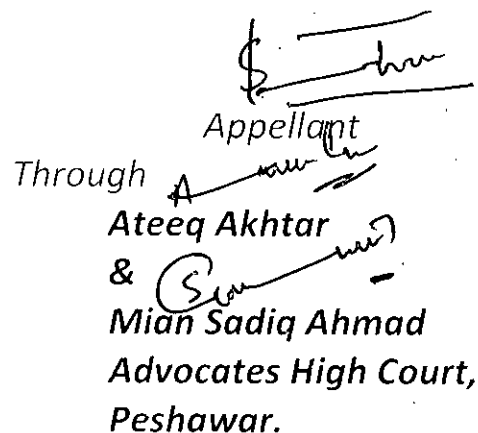 Appellant
Through
Ateeq Akhtar
&
Mian Sadiq Ahmad
Advocates High Court,
Peshawar.